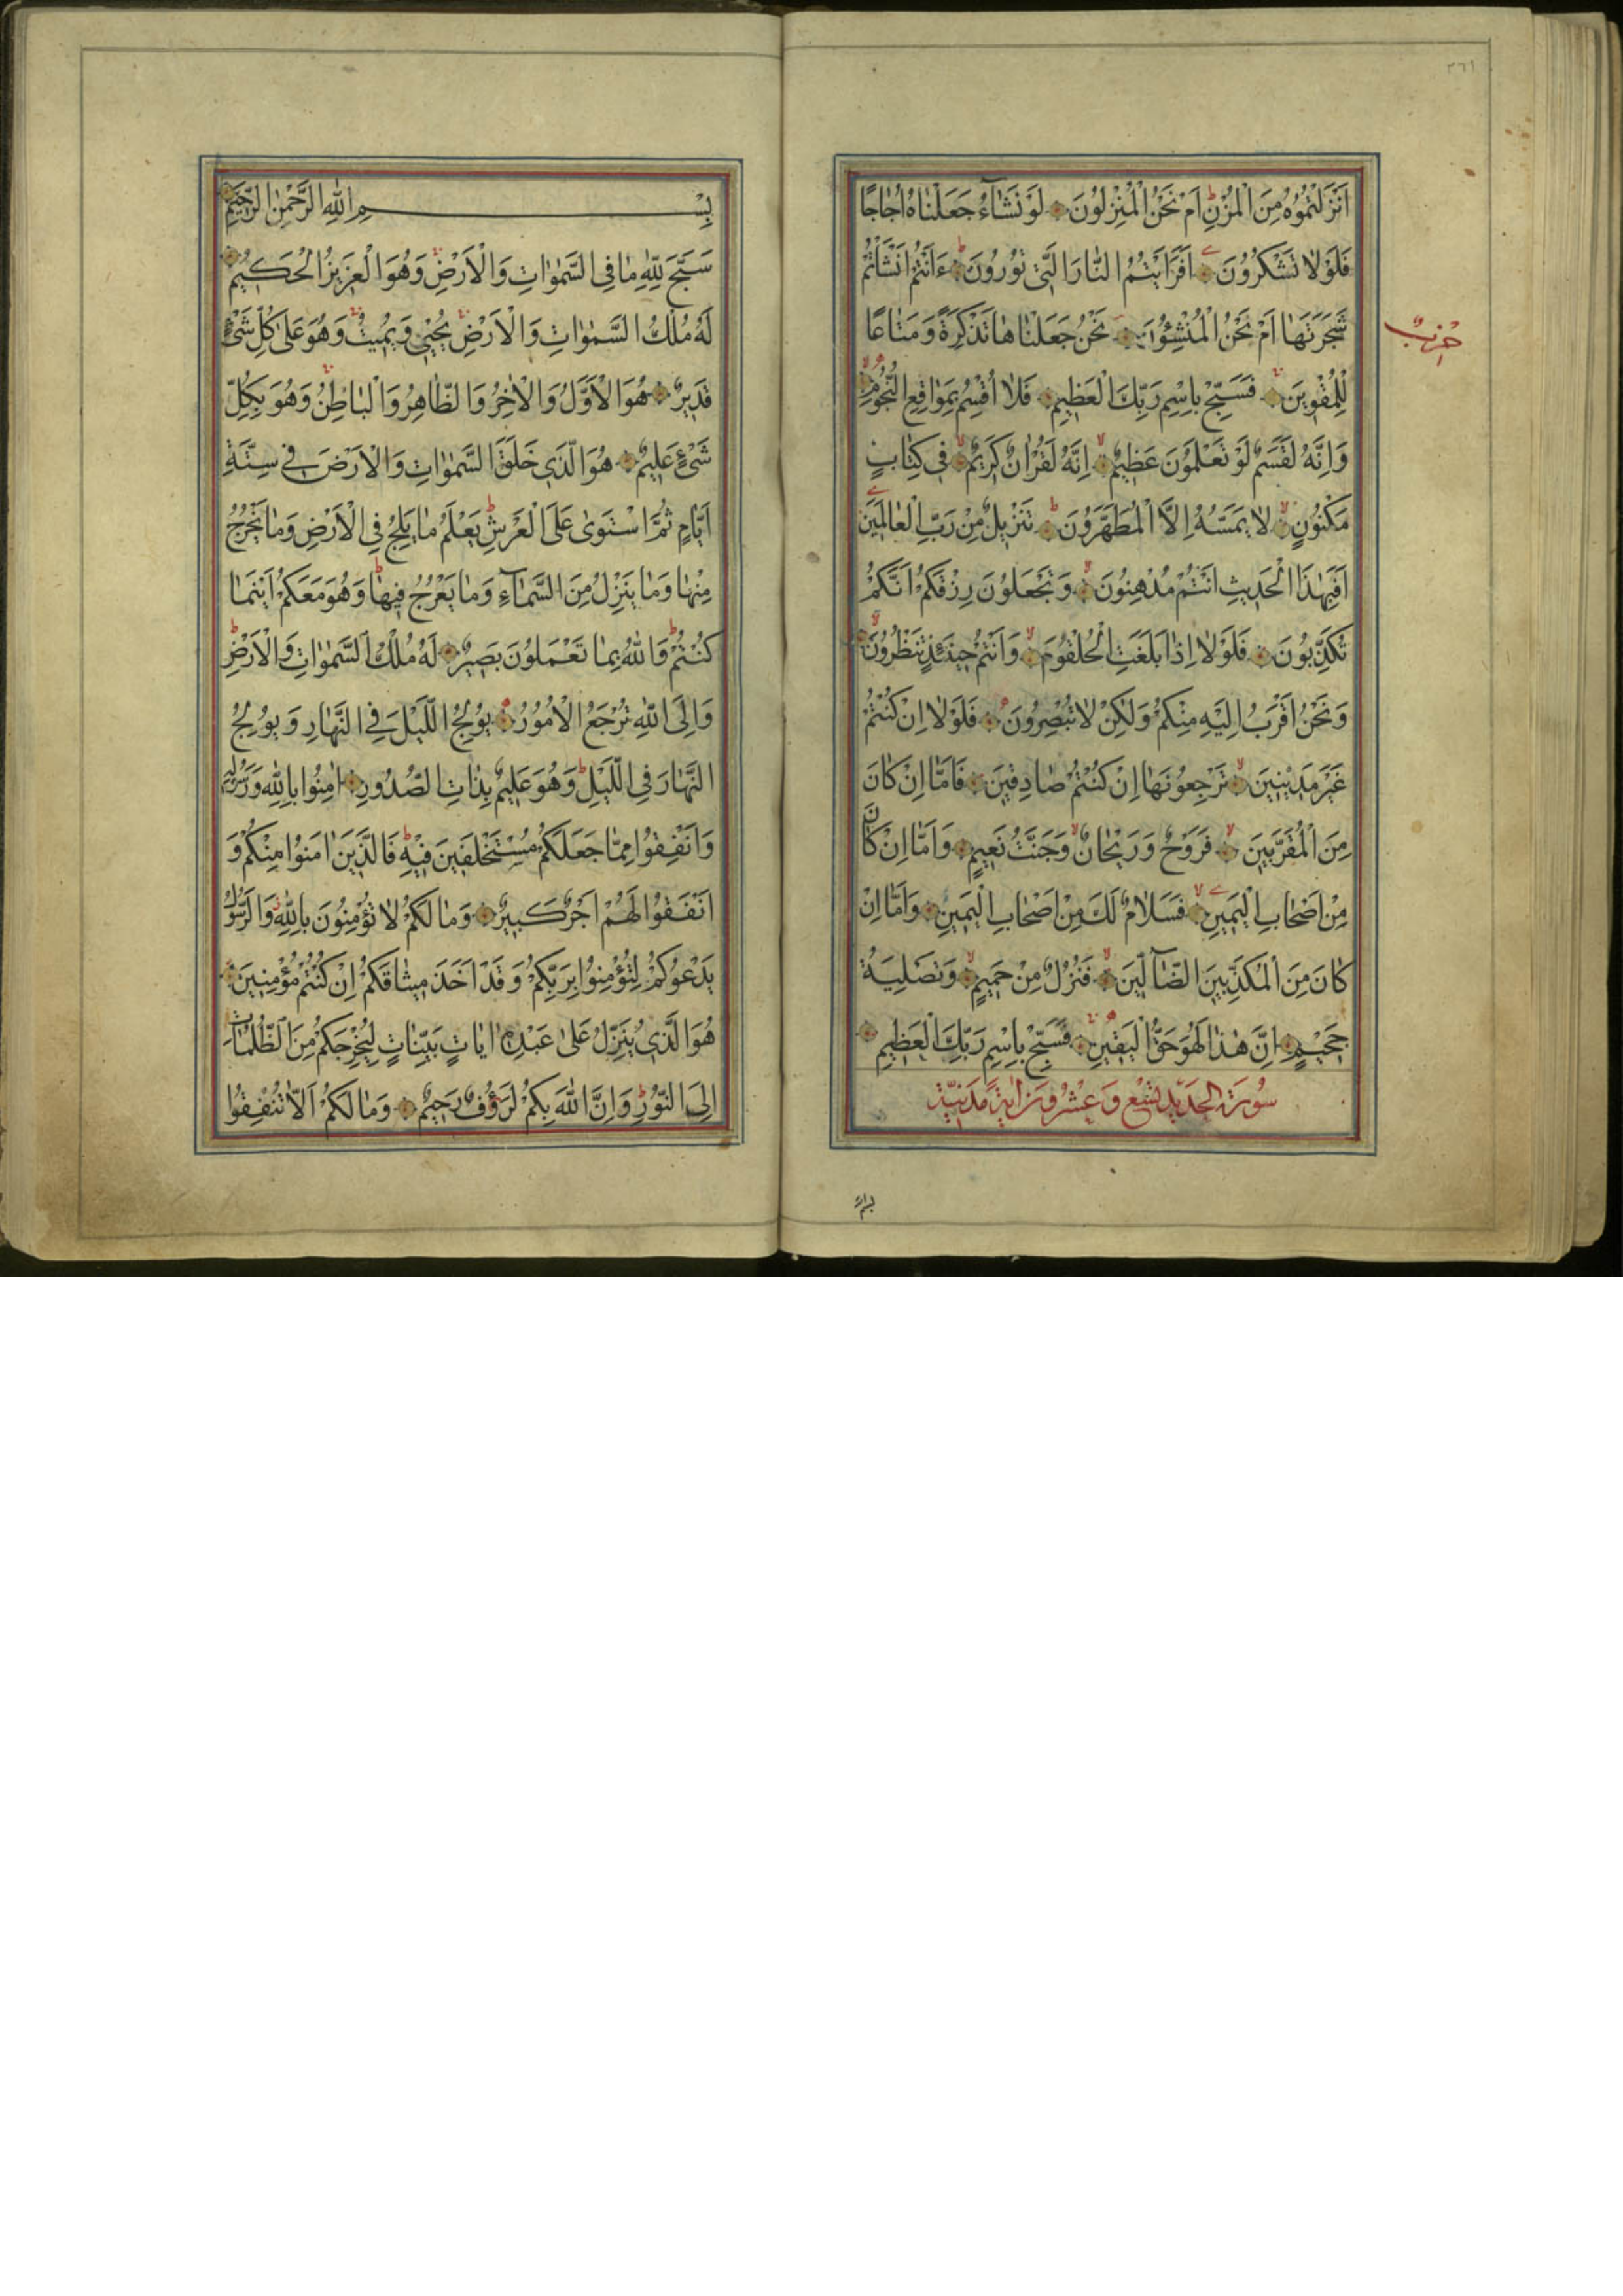 ٣٦١
اَنْزَلْتُمُوهُ مِنَ الْمُزْنِ اَمْ نَحْنُ الْمُنْزِلُونَ لَوْ نَشَاۤءُ جَعَلْنَاهُ اُجَاجًا
فَلَوْلَا تَشْكُرُونَ اَفَرَاَيْتُمُ النَّارَ الَّتِي تُورُونَ ءَاَنْتُمْ اَنْشَأْتُمْ
شَجَرَتَهَا اَمْ نَحْنُ الْمُنْشِؤُنَ نَحْنُ جَعَلْنَاهَا تَذْكِرَةً وَمَتَاعًا
حزب
لِلْمُقْوِينَ فَسَبِّحْ بِاسْمِ رَبِّكَ الْعَظِيمِ فَلَا اُقْسِمُ بِمَوَاقِعِ النُّجُومِ
وَاِنَّهُ لَقَسَمٌ لَوْ تَعْلَمُونَ عَظِيمٌ اِنَّهُ لَقُرْاٰنٌ كَرِيمٌ فِي كِتَابٍ
مَكْنُونٍ لَا يَمَسُّهُ اِلَّا الْمُطَهَّرُونَ تَنْزِيلٌ مِنْ رَبِّ الْعَالَمِينَ
اَفَبِهٰذَا الْحَدِيثِ اَنْتُمْ مُدْهِنُونَ وَتَجْعَلُونَ رِزْقَكُمْ اَنَّكُمْ
تُكَذِّبُونَ فَلَوْلَا اِذَا بَلَغَتِ الْحُلْقُومَ وَاَنْتُمْ حِينَئِذٍ تَنْظُرُونَ
وَنَحْنُ اَقْرَبُ اِلَيْهِ مِنْكُمْ وَلٰكِنْ لَا تُبْصِرُونَ فَلَوْلَا اِنْ كُنْتُمْ
غَيْرَ مَدِينِينَ تَرْجِعُونَهَا اِنْ كُنْتُمْ صَادِقِينَ فَاَمَّا اِنْ كَانَ
مِنَ الْمُقَرَّبِينَ فَرَوْحٌ وَرَيْحَانٌ وَجَنَّتُ نَعِيمٍ وَاَمَّا اِنْ كَانَ
مِنْ اَصْحَابِ الْيَمِينِ فَسَلَامٌ لَكَ مِنْ اَصْحَابِ الْيَمِينِ وَاَمَّا اِنْ
كَانَ مِنَ الْمُكَذِّبِينَ الضَّاۤلِّينَ فَنُزُلٌ مِنْ حَمِيمٍ وَتَصْلِيَةُ
جَحِيمٍ اِنَّ هٰذَا لَهُوَ حَقُّ الْيَقِينِ فَسَبِّحْ بِاسْمِ رَبِّكَ الْعَظِيمِ
سُورَةُ الْحَدِيدِ تِسْعٌ وَعِشْرُونَ اٰيَةً مَدَنِيَّةٌ
بِسْمِ اللّٰهِ الرَّحْمٰنِ الرَّحِيمِ
سَبَّحَ لِلّٰهِ مَا فِي السَّمٰوَاتِ وَالْاَرْضِ وَهُوَ الْعَزِيزُ الْحَكِيمُ
لَهُ مُلْكُ السَّمٰوَاتِ وَالْاَرْضِ يُحْيِي وَيُمِيتُ وَهُوَ عَلٰى كُلِّ شَيْءٍ
قَدِيرٌ هُوَ الْاَوَّلُ وَالْاٰخِرُ وَالظَّاهِرُ وَالْبَاطِنُ وَهُوَ بِكُلِّ
شَيْءٍ عَلِيمٌ هُوَ الَّذِي خَلَقَ السَّمٰوَاتِ وَالْاَرْضَ فِي سِتَّةِ
اَيَّامٍ ثُمَّ اسْتَوٰى عَلَى الْعَرْشِ يَعْلَمُ مَا يَلِجُ فِي الْاَرْضِ وَمَا يَخْرُجُ
مِنْهَا وَمَا يَنْزِلُ مِنَ السَّمَاۤءِ وَمَا يَعْرُجُ فِيهَا وَهُوَ مَعَكُمْ اَيْنَمَا
كُنْتُمْ وَاللّٰهُ بِمَا تَعْمَلُونَ بَصِيرٌ لَهُ مُلْكُ السَّمٰوَاتِ وَالْاَرْضِ
وَاِلَى اللّٰهِ تُرْجَعُ الْاُمُورُ يُولِجُ اللَّيْلَ فِي النَّهَارِ وَيُولِجُ
النَّهَارَ فِي اللَّيْلِ وَهُوَ عَلِيمٌ بِذَاتِ الصُّدُورِ اٰمِنُوا بِاللّٰهِ وَرَسُولِهِ
وَاَنْفِقُوا مِمَّا جَعَلَكُمْ مُسْتَخْلَفِينَ فِيهِ فَالَّذِينَ اٰمَنُوا مِنْكُمْ وَ
اَنْفَقُوا لَهُمْ اَجْرٌ كَبِيرٌ وَمَا لَكُمْ لَا تُؤْمِنُونَ بِاللّٰهِ وَالرَّسُولُ
يَدْعُوكُمْ لِتُؤْمِنُوا بِرَبِّكُمْ وَقَدْ اَخَذَ مِيثَاقَكُمْ اِنْ كُنْتُمْ مُؤْمِنِينَ
هُوَ الَّذِي يُنَزِّلُ عَلٰى عَبْدِهِ اٰيَاتٍ بَيِّنَاتٍ لِيُخْرِجَكُمْ مِنَ الظُّلُمَاتِ
اِلَى النُّورِ وَاِنَّ اللّٰهَ بِكُمْ لَرَؤُفٌ رَحِيمٌ وَمَا لَكُمْ اَلَّا تُنْفِقُوا